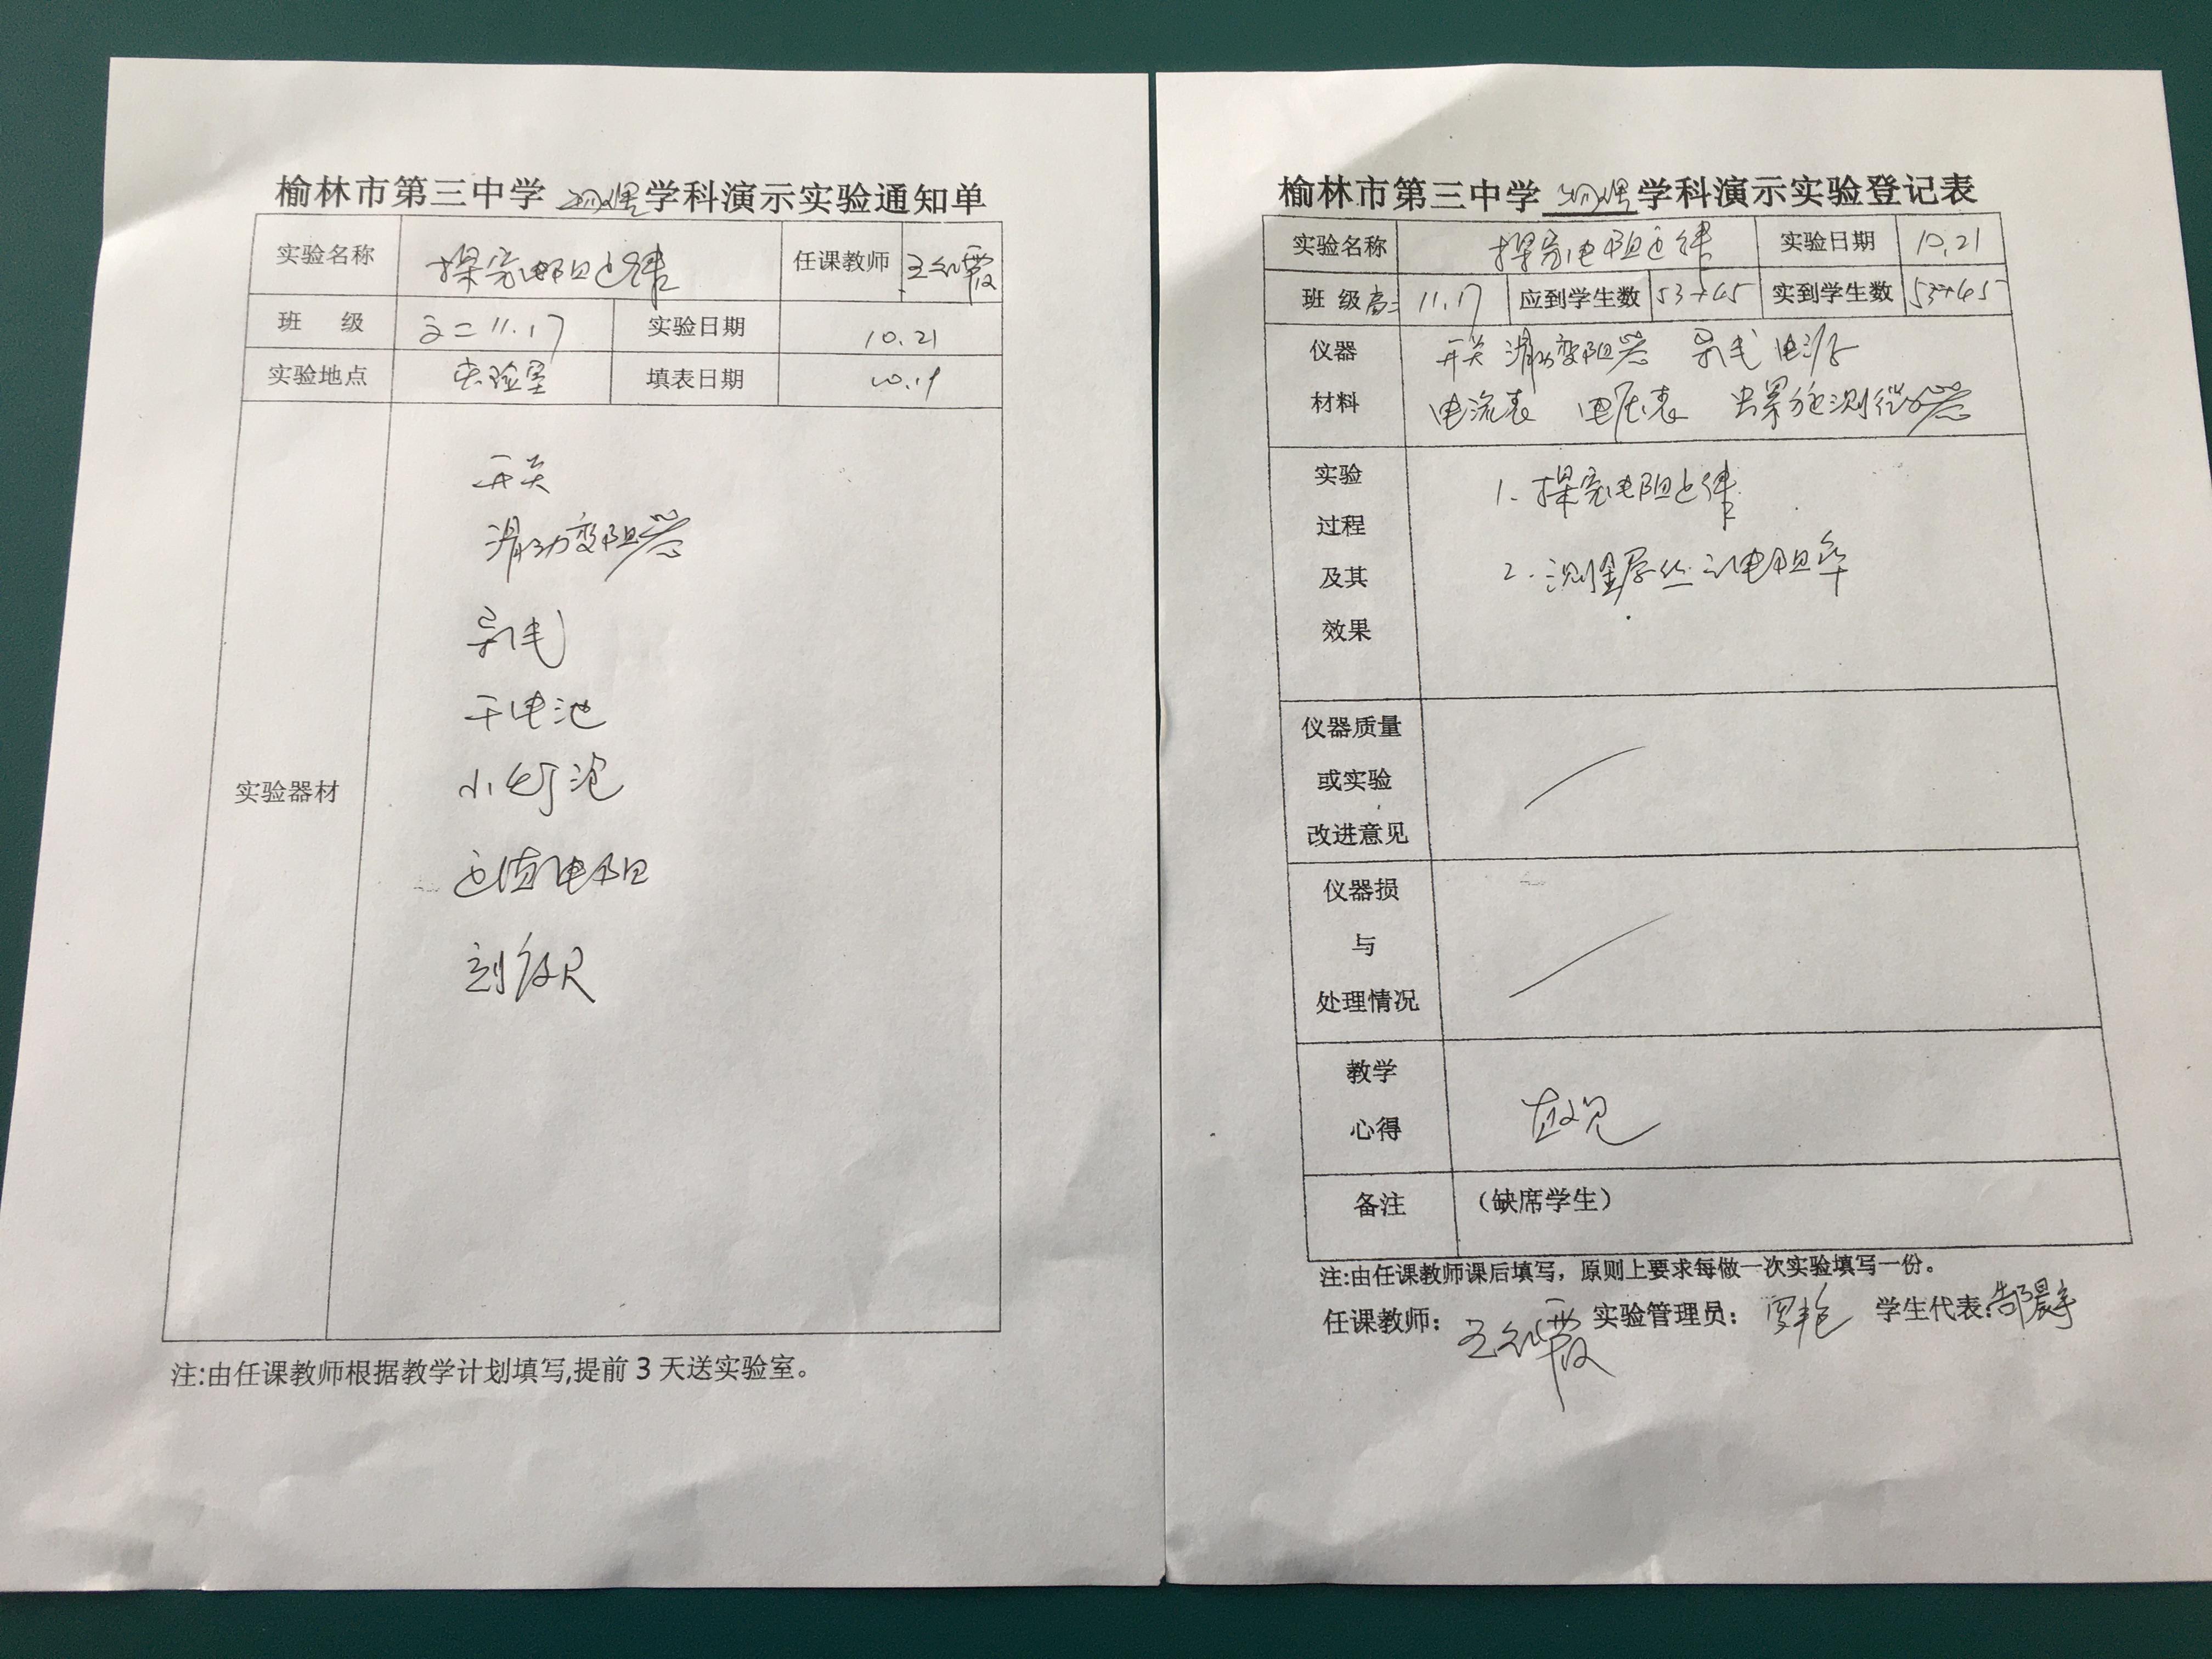 榆林市第三中学 物理 学科演示实验通知单
实验名称 探究电阻定律 任课教师 王红霞
班 级 高二 11.17 实验日期 10.21
实验地点 实验室 填表日期 10.19
实验器材
开关
滑动变阻器
导线
干电池
小灯泡
定值电阻
刻度尺
注:由任课教师根据教学计划填写,提前3天送实验室。
榆林市第三中学 物理 学科演示实验登记表
实验名称 探究电阻定律 实验日期 10.21
班 级 高二 11.17 应到学生数 53+45 实到学生数 53+45
仪器 开关 滑动变阻器 导线 电源
材料 电流表 电压表 螺旋测微器
实验 1.探究电阻定律
过程
及其 2.测金属丝的电阻率
效果
仪器质量
或实验
改进意见
仪器损
与
处理情况
教学
心得 直观
备注 （缺席学生）
注:由任课教师课后填写，原则上要求每做一次实验填写一份。
任课教师：王红霞 实验管理员：罗艳 学生代表: